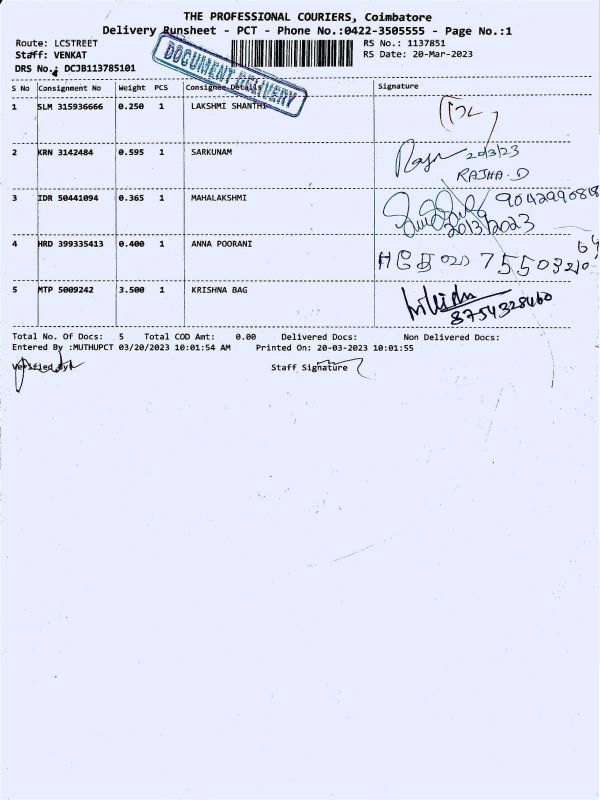 THE PROFESSIONAL COURIERS, Coimbatore
Delivery Runsheet - PCT - Phone No.:0422-3505555 - Page No.:1
Route: LCSTREET RS No.: 1137851
Staff: VENKAT RS Date: 20-Mar-2023
DRS No.: DCJB113785101
DOCUMENT DELIVERY
S No Consignment No Weight PCS Consignee Details Signature
1 SLM 315936666 0.250 1 LAKSHMI SHANTHI
2 KRN 3142484 0.595 1 SARKUNAM 20/3/23
RAJHA.D
3 IDR 50441094 0.365 1 MAHALAKSHMI 9042990818
20/3/2023
4 HRD 399335413 0.400 1 ANNA POORANI
5 MTP 5009242 3.500 1 KRISHNA BAG
8754328460
Total No. Of Docs: 5 Total COD Amt: 0.00 Delivered Docs: Non Delivered Docs:
Entered By :MUTHUPCT 03/20/2023 10:01:54 AM Printed On: 20-03-2023 10:01:55
Verified By Staff Signature